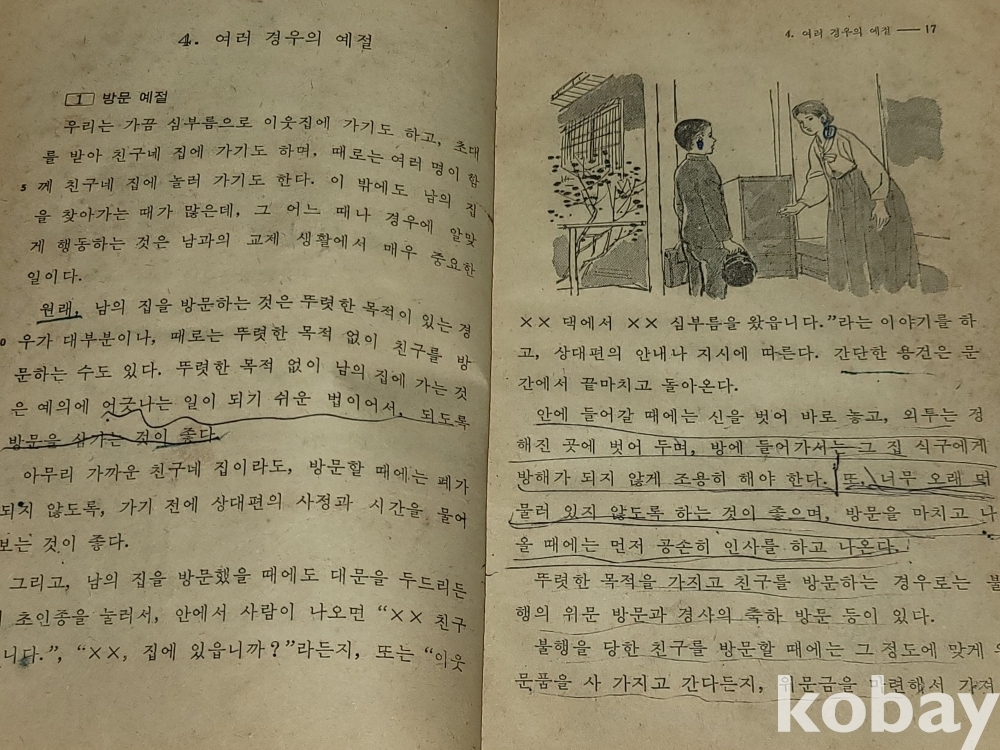 4. 여러 경우의 예절
1 방문 예절
우리는 가끔 심부름으로 이웃집에 가기도 하고, 초대
를 받아 친구네 집에 가기도 하며, 때로는 여러 명이 함
5 께 친구네 집에 놀러 가기도 한다. 이 밖에도 남의 집
을 찾아가는 때가 많은데, 그 어느 때나 경우에 알맞
게 행동하는 것은 남과의 교제 생활에서 매우 중요한
일이다.
원래, 남의 집을 방문하는 것은 뚜렷한 목적이 있는 경
0 우가 대부분이나, 때로는 뚜렷한 목적 없이 친구를 방
문하는 수도 있다. 뚜렷한 목적 없이 남의 집에 가는 것
은 예의에 어긋나는 일이 되기 쉬운 법이어서, 되도록
방문을 삼가는 것이 좋다.
아무리 가까운 친구네 집이라도, 방문할 때에는 폐가
되지 않도록, 가기 전에 상대편의 사정과 시간을 물어
보는 것이 좋다.
그리고, 남의 집을 방문했을 때에도 대문을 두드리든
초인종을 눌러서, 안에서 사람이 나오면 “×× 친구
니다.”, “××, 집에 있읍니까?”라든지, 또는 “이웃
4. 여러 경우의 예절 — 17
×× 댁에서 ×× 심부름을 왔읍니다.”라는 이야기를 하
고, 상대편의 안내나 지시에 따른다. 간단한 용건은 문
간에서 끝마치고 돌아온다.
안에 들어갈 때에는 신을 벗어 바로 놓고, 외투는 정
해진 곳에 벗어 두며, 방에 들어가서는 그 집 식구에게
방해가 되지 않게 조용히 해야 한다. 또, 너무 오래 머
물러 있지 않도록 하는 것이 좋으며, 방문을 마치고 나
올 때에는 먼저 공손히 인사를 하고 나온다.
뚜렷한 목적을 가지고 친구를 방문하는 경우로는 불
행의 위문 방문과 경사의 축하 방문 등이 있다.
불행을 당한 친구를 방문할 때에는 그 정도에 맞게
문품을 사 가지고 간다든지, 위문금을 마련해서 가져
kobay